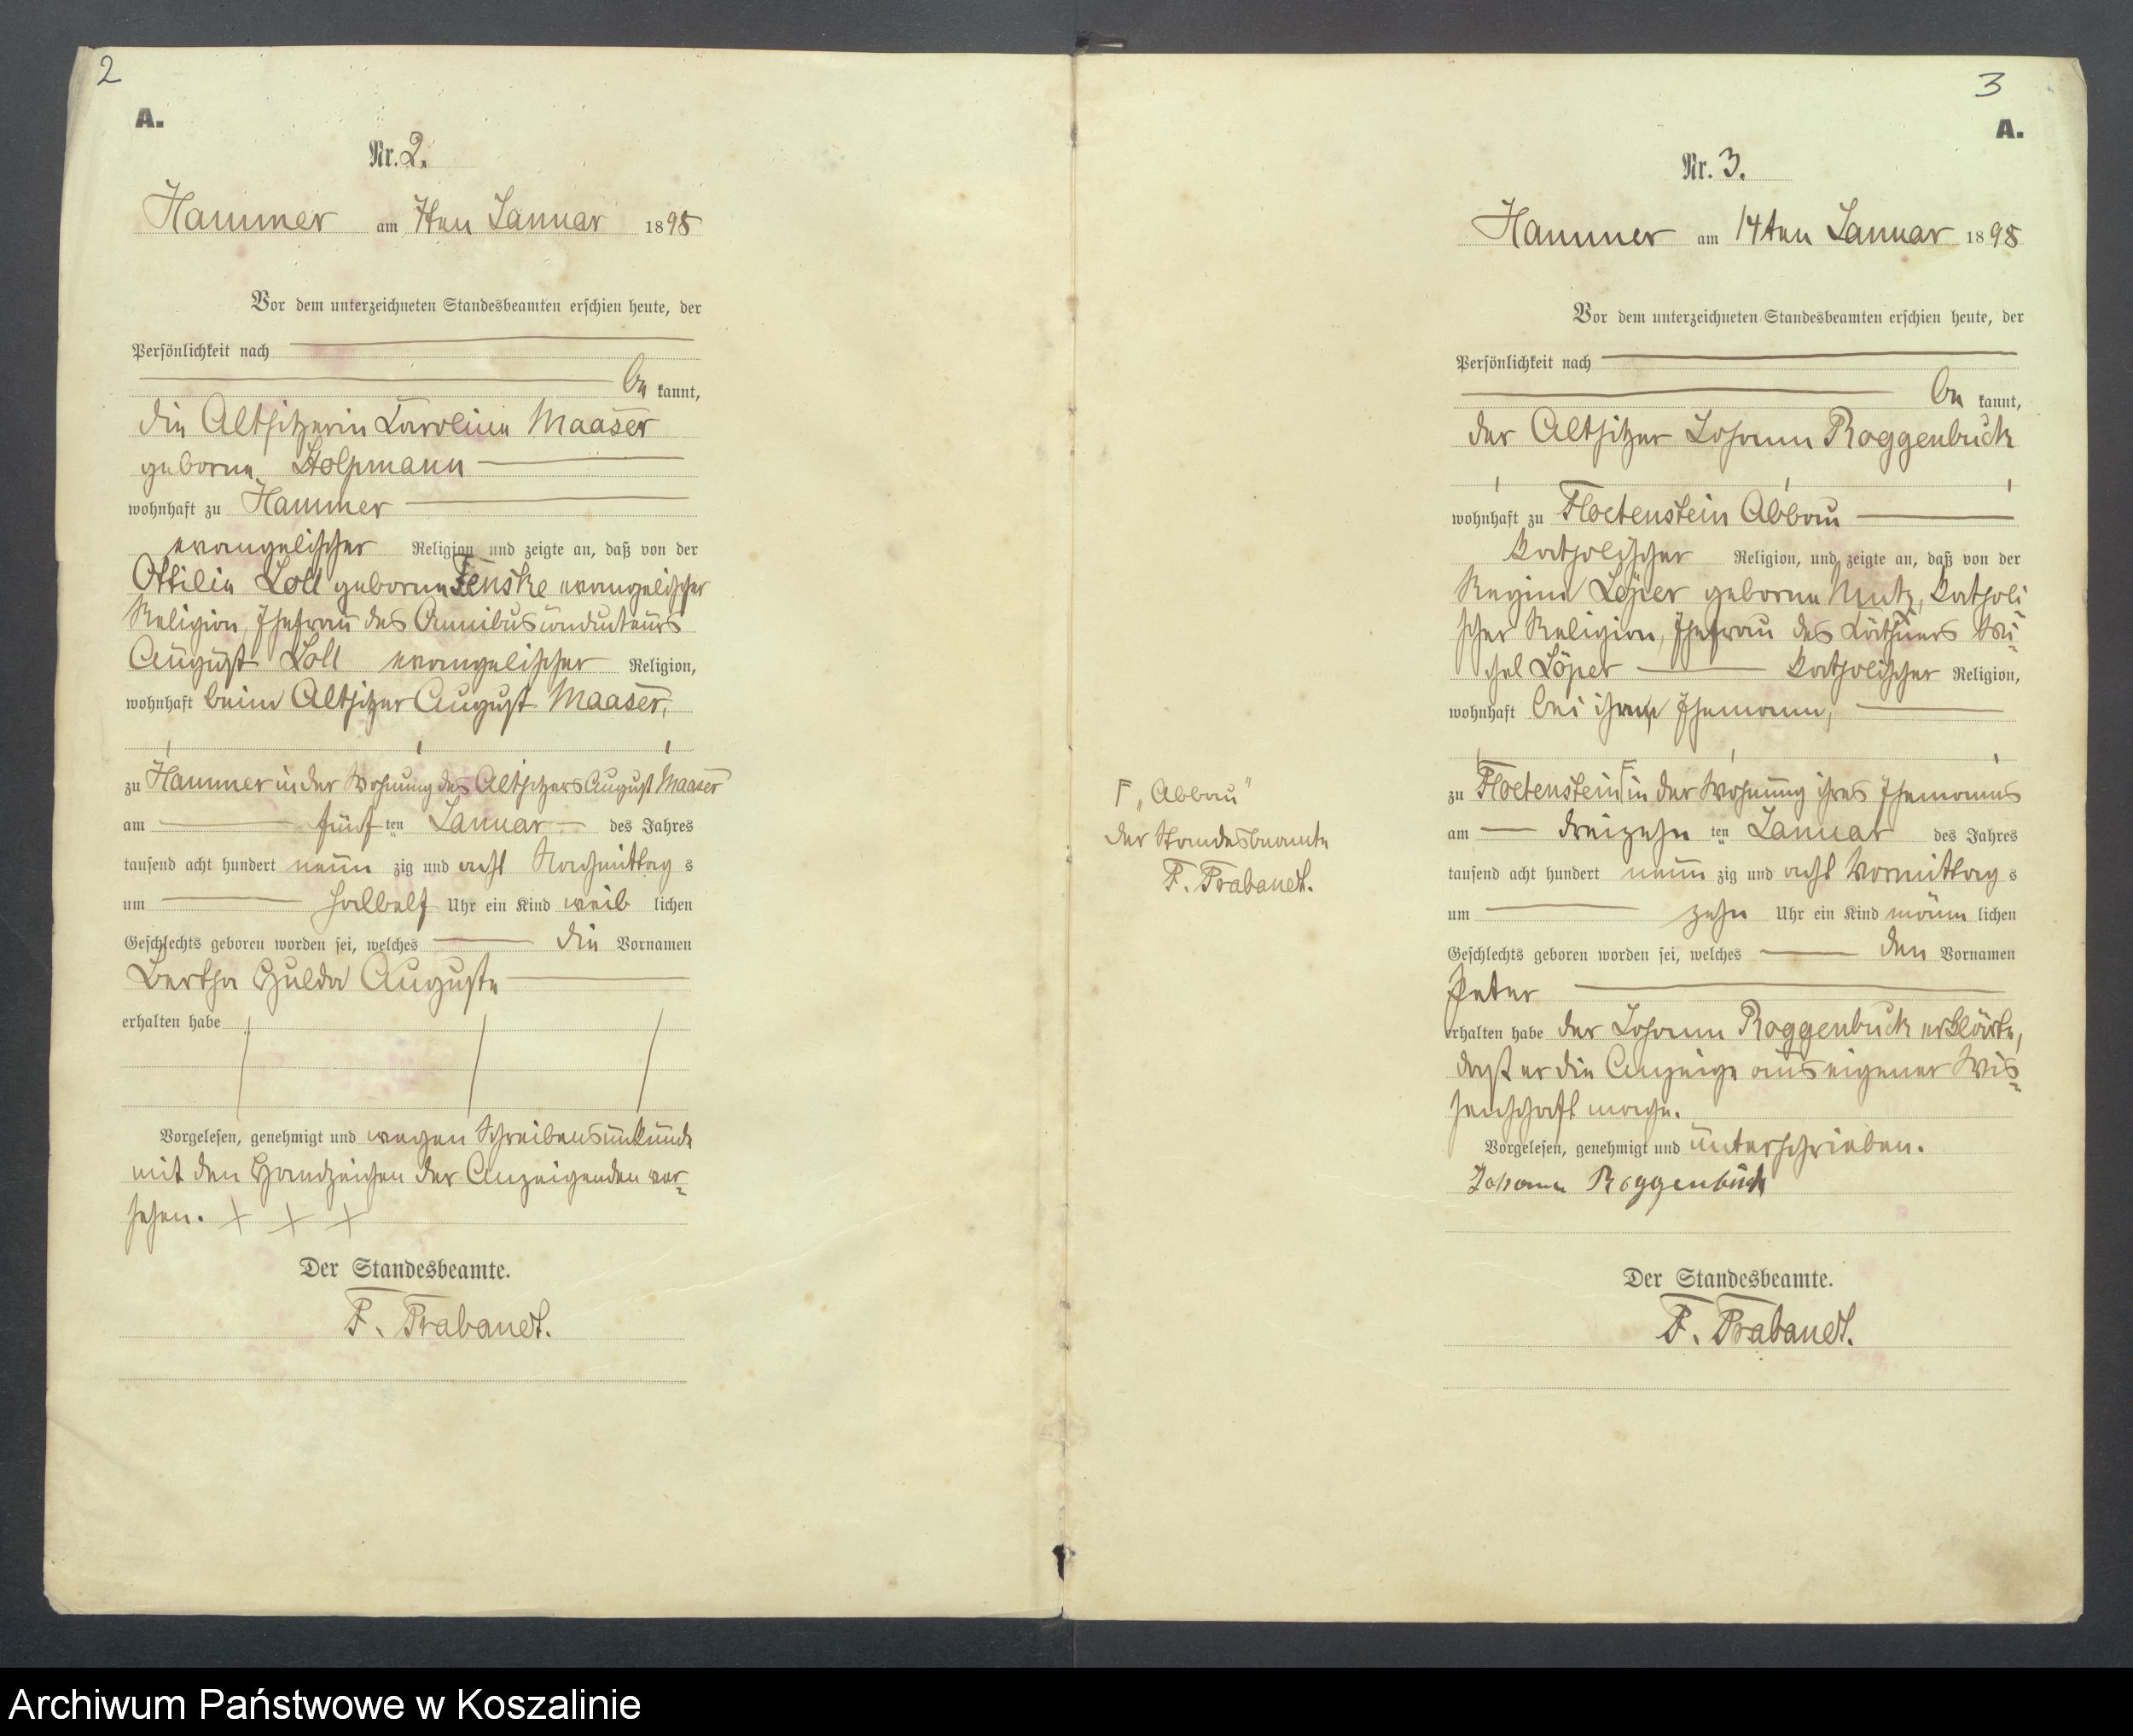 2
A.
Nr. 2.
Hammer am 7ten Januar 1898
Vor dem unterzeichneten Standesbeamten erschien heute, der
Persönlichkeit nach
be kannt,
die Altsitzerin Karoline Maaser
geborne Stolpmann
wohnhaft zu Hammer
evangelischer Religion und zeigte an, daß von der
Ottilie Loll geborne Fenske evangelischer
Religion, Ehefrau des Omnibusconducteurs
August Loll evangelischer Religion,
wohnhaft beim Altsitzer August Maaser,
zu Hammer in der Wohnung des Altsitzers August Maaser
am fünf ten Januar des Jahres
tausend acht hundert neun zig und acht Nachmittag s
um halbelf Uhr ein Kind weib lichen
Geschlechts geboren worden sei, welches die Vornamen
Bertha Hulda Auguste
erhalten habe
Vorgelesen, genehmigt und wegen Schreibensunkunde
mit den Handzeichen der Anzeigenden ver-
sehen. + + +
Der Standesbeamte.
F. Prabandt.
3
A.
Nr. 3.
Hammer am 14ten Januar 1898
Vor dem unterzeichneten Standesbeamten erschien heute, der
Persönlichkeit nach
be kannt,
der Altsitzer Johann Roggenbuck
wohnhaft zu Floetenstein Abbau
katholischer Religion, und zeigte an, daß von der
Regine Löper geborne Mutz, katholi
scher Religion, Ehefrau des Käthners Mi-
chel Löper katholischer Religion,
wohnhaft bei ihrem Ehemann,
zu Floetenstein Γ in der Wohnung ihres Ehemannes
am dreizehn ten Januar des Jahres
tausend acht hundert neun zig und acht Vormittag s
um zehn Uhr ein Kind männ lichen
Geschlechts geboren worden sei, welches den Vornamen
Peter
erhalten habe der Johann Roggenbuck erklärte,
daß er die Anzeige aus eigener Wis-
senschaft mache.
Vorgelesen, genehmigt und unterschrieben.
Johann Roggenbuck
Der Standesbeamte.
F. Prabandt.
Γ „Abbau"
Der Standesbeamte
F. Prabandt.
Archiwum Państwowe w Koszalinie